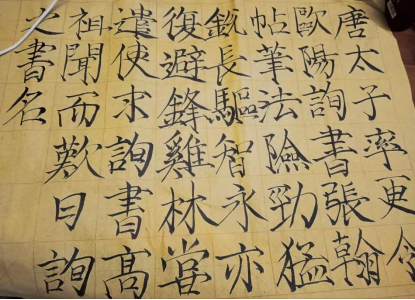 唐太子率更令
歐陽詢書張翰
帖筆法險勁猛
銳長驅智永亦
復避鋒雞林嘗
遣使求詢書高
祖聞而歎曰詢
之書名